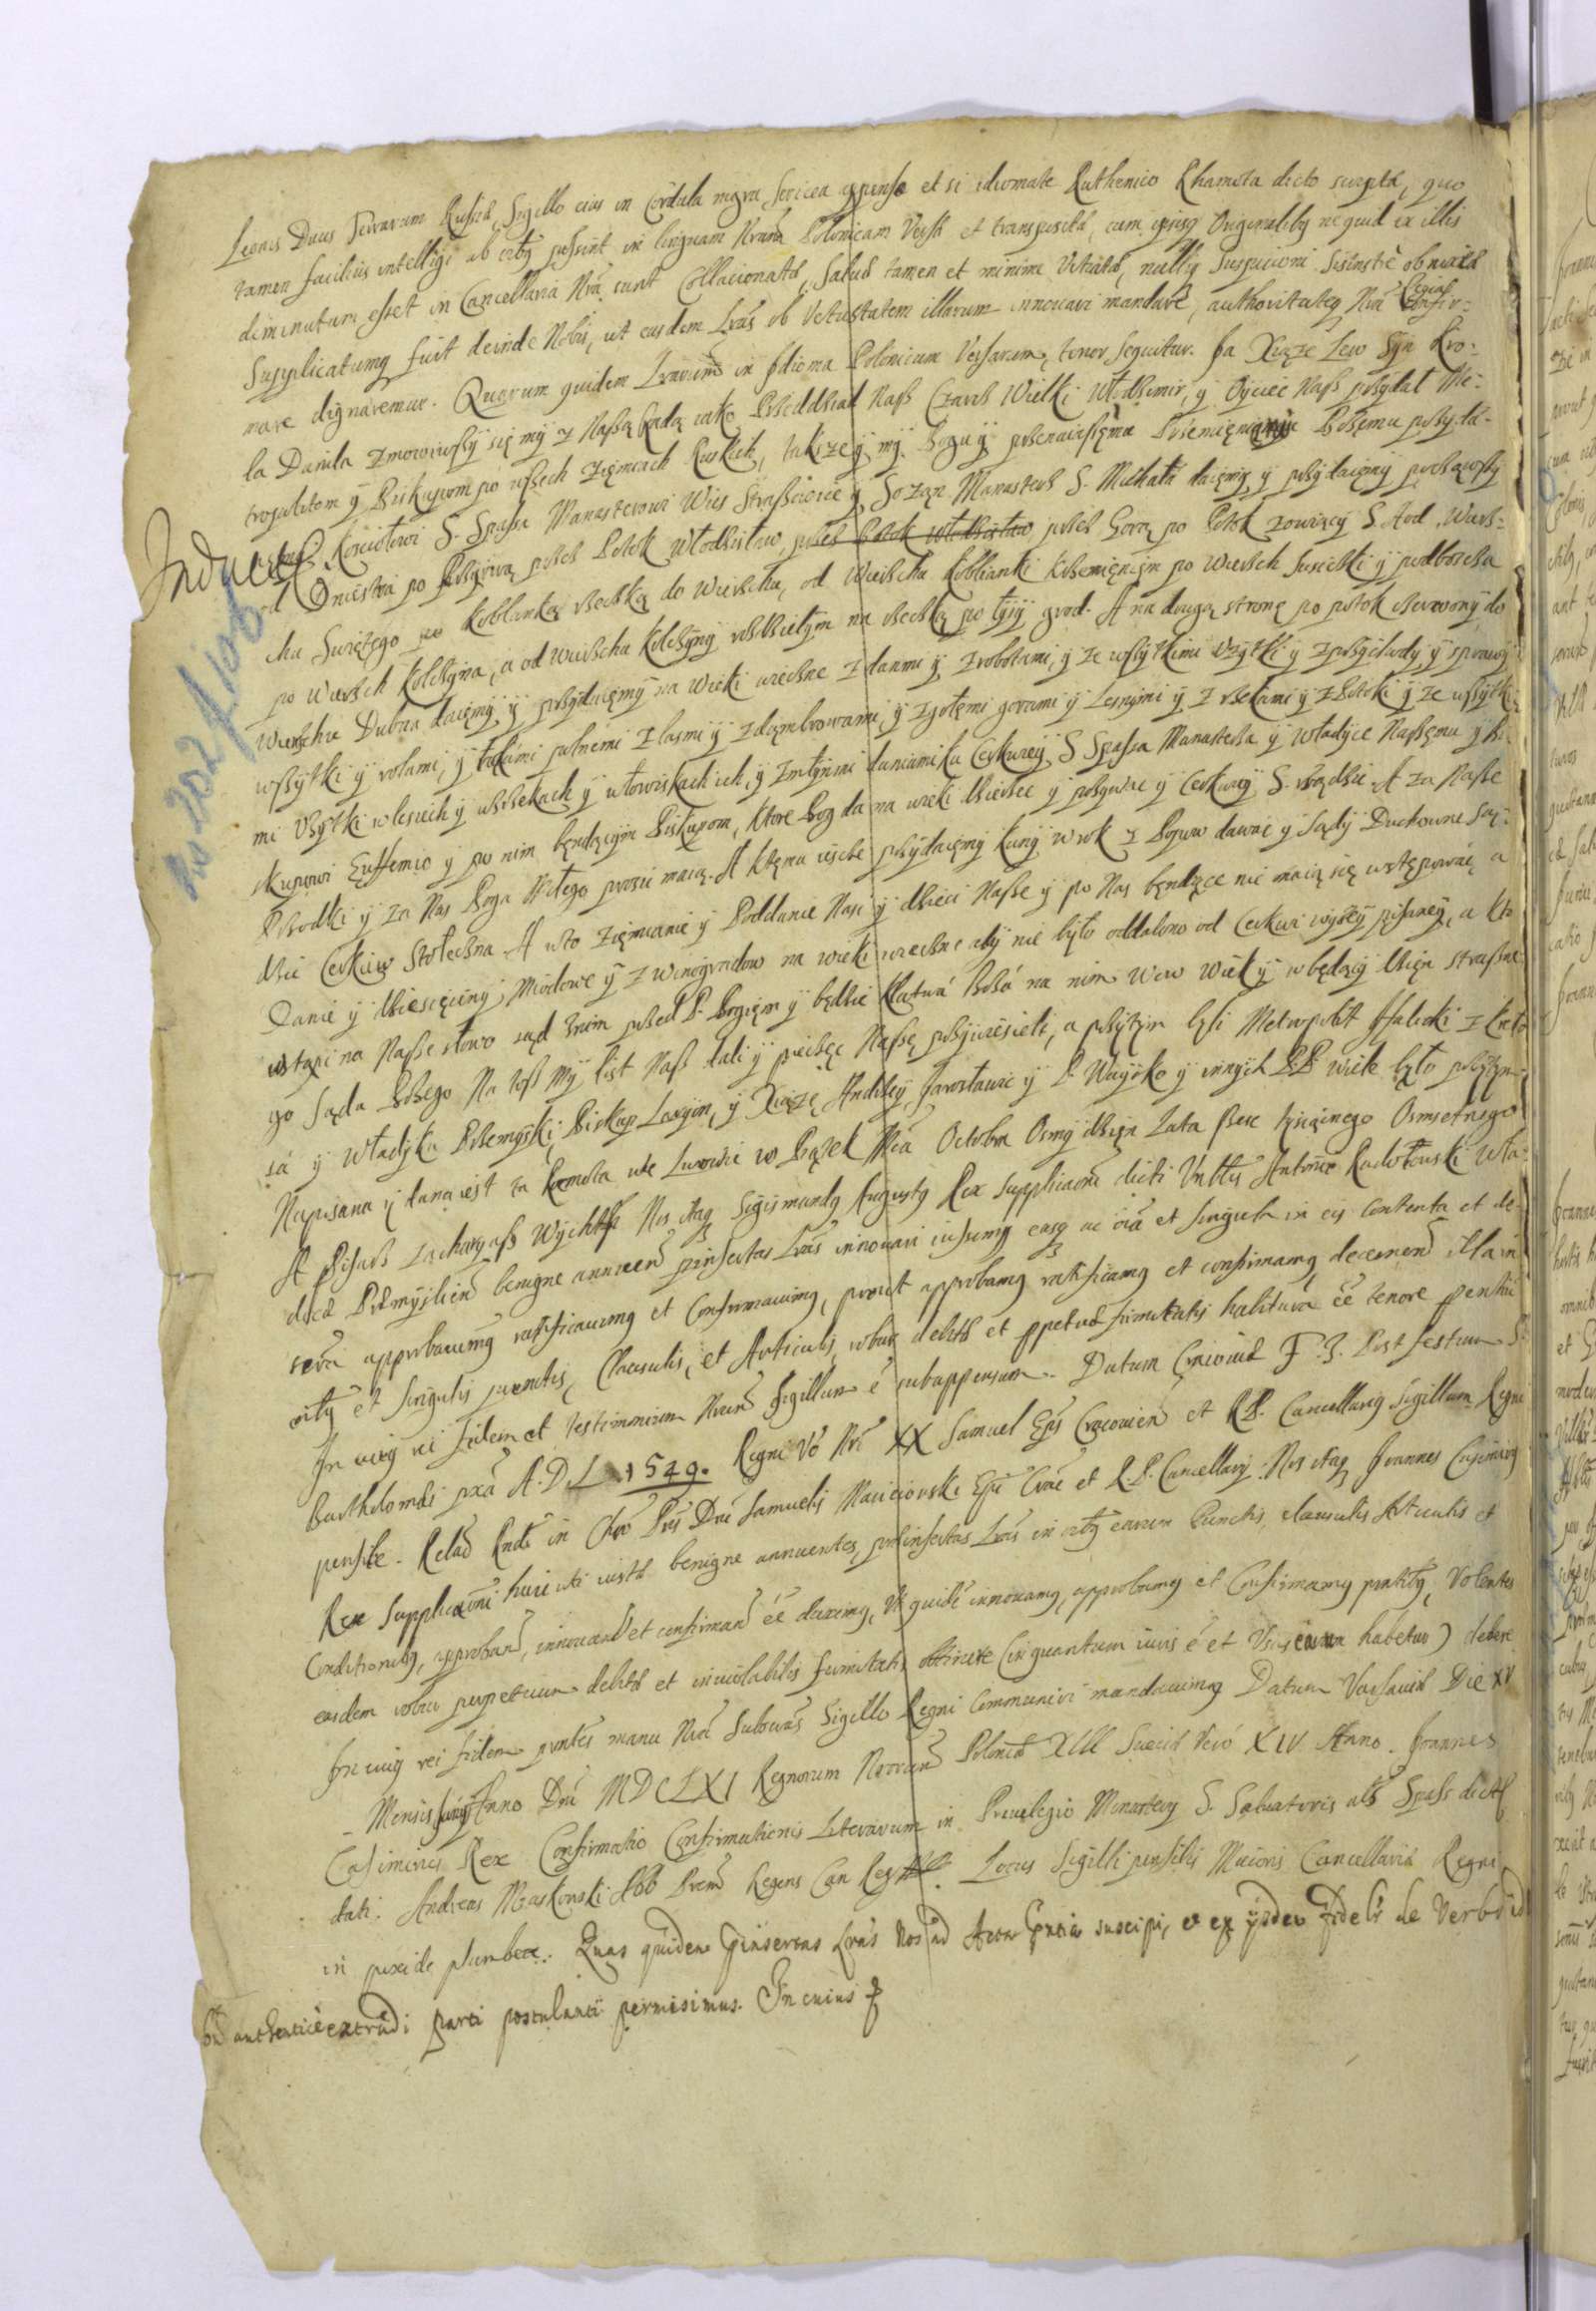 Leonis Ducis Terrarum Russiæ, Sigillo eius in Cordula nigra Sericea appensæ et si idiomate Ruthenico Rhamota dicto scripta, quo
tamen facilius intelligi ab oibq possint in linguam Nram Polonicam Versæ et transpositæ, cum ipsisq Originalibq ne quid ex illis
diminutum esset in Cancellaria Nra sunt Collacionatæ, Salvæ tamen et minime Vitiatæ, nulliq Suspicioni Sisinstre obnoxiæ
Supplicatumq fuit deinde Nobis, ut easdem Lras ob Vetustatem illarum innovari mandare, authoritateq Nra Regia Confir-
mare dignaremur. Quarum quidem Lrarum in Idioma Polonicum Versarum, tenor sequitur. Ja Xiąże Lew Syn Kro-
la Danila zmowiwszy się my z Naszą Radą iako Przeddziad Nasz Czarz Wielki Włodzimir, y Oyciec Nasz przydał Me-
tropolitom y Biskupom po wszech ziemiach Ruskich, takze y my Bogu y Przenaswiętszęma Bożemu przyda-
Kościołowi S. Spassa Manasterowi Wieś Strassewice y Sozan Manasterz S. Michała daiemy y przydaiemy począwszy
od Dniestra po przez Potok Włodzisław, przez Potok Włodzisław przez Gorę po Potok zowiący S. Aod Wierz-
chu Swiętego po Koblankę rzeczkę do Wierzcha, od Wierzcha Koblanki Krzemieniem po Wierzch Susiczki y podboczcza
po Wierzch Kolczyna, a od Wierzcha Kolczyny rozdzielym na rzeczkę po tyiy grod. A na drugą stronę po potok czerwony do
Wierzchu Dubna daiemy y przydaiemy na Wieki wieczne z danmi y z robotami, y ze wszytkimi Użytki y z przychody, y sprawy
wszytki y rolami, y łąkami polnemi z lasmi y z dąmbrowami, y z gołemi gorami y Lesnymi y z rzekami y z Potoki y ze wszytki
mi Użytki w lesiech y w rzekach y w łowiskach ich, y z młynmi daniamika Cerkwiey S Spassa Manasterza y władyce Naszęmu y Bi-
skupowi Euffemio y po nim będącym Biskupom, ktore Bog da na wieki dzierżec y pożywac y Cerkwiy S. rządzic A za Nasze
Przodki y za Nas Boga Miłego prosic maią. A ktemu iescze przydaiemy Kuny w rok z Popow dawac y Sądy Duchowne Sąi-
dzic Cerkiew Stołeczna. A wto ziemianie y Poddanie Nasi y dzieci Nasze y po Nas będące nie maią się wstępowac a
Danie y dziesięciny Miodowe y z winogradow na wieki wieczne aby nie było oddalono od Cerkwi wyżey pisaney, a kto
wstąpi na Nasze słowo sąd z nim przed P. Bogiem y będzie klątwa Boża na nim w ow wiek y w będący dzien straszne-
go Sądu Bożego Na tosz My list Nasz dali y pieczęc Naszę przywiesieli, a przytym byli Metropolit Halicki z
sa y Władyka Przemyski Biskup Laryon, y Xiąże Andrzey Jarosławic y P. Woyśko y innych PP wiele było przytym
Napisana y dana iest ta Ramota we Lwowie w Piątek Mca Octobra Osmy dzien Lata Szesc tysiącnego Osmsetnego
A Pisarz Zacharyasz Wychtsz Nos itaq Sigismundq Augustq Rex Supplicaoni dicti Vnblis Antonii Radołouski Wła-
dicæ Præmysliens benigne annuens præinsertas Lras innovari iussimq easq ac oia et singula in eis Contenta et de-
creta approbavimq ratificavimq et Confirmavimq, prout approbamq ratificamq et confirmamq decernens illa in
oibq et singulis punctis, Clausulis, et Articulis robur debitæ et ppetuæ firmitatis habitura ee tenore pntium
In cuius rei fidem et testimonium Nrum Sigillum e subappensum. Datum Cracoviæ F. 3. Post festum S.
Bartholomæi pxa A. D. 1549. Regni Vo Nri XX Samuel Eps Cracovien et R.P. Cancellariq Sigillum Regni
pensile. Relao Rndi in Chro Pris Dni Samuelis Macieiovski Epi Crac et R.P. Cancellarij. Nos itaq Joannes Casimirq
Rex Supplicaoni huic uti iustæ benigne annuentes, præinsertas Lras in oibq earum Punctis, clausulis Articulis et
Conditionibq, approband, innovand et confirmand ee duximq, Uti quidē innovamq, approbamq et Confirmamq pntibq, Volentes
easdem robur perpetuum debitæ et inviolabilis firmitatis obtinere (in quantum iuris e et Usus earum habetur) debere
In cuius rei fidem pntes manu Nra Subscras Sigillo Regni Communiri mandavimq Datum Varsaviæ Die XV
Mensis Junij Anno Dni MDCLXI Regnorum Nrorum Poloniæ XIII Sueciæ Vero XIV Anno. Joannes
Casimirus Rex Confirmatio Confirmationis Literarum in Privilegio Monasterij S. Salvatoris als Spass dicti
dati. Andreas Miaskouski Abb Prem Regens Can Reg. Locus Sigilli pensilis Maioris Cancellariæ Regni
in pixide plumbea. Quas quidem pinsertas Lras Nos ad Acta pntia suscipi, et ex ijsdem fideli de Verbo ad
bū authentice extradi parti postulanti permisimus. In cuius
Inducta
1549